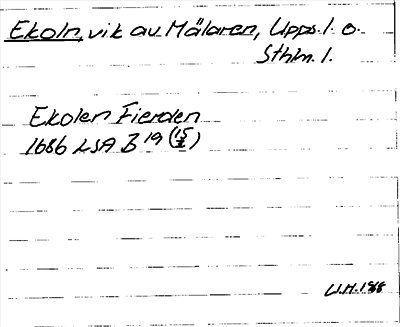 Ekoln, vik av Mälaren, Upps. l. o.
Sthlm. l.
Ekolen Fierden
1686 LSA B 19 (15/2)
U.H. 1988